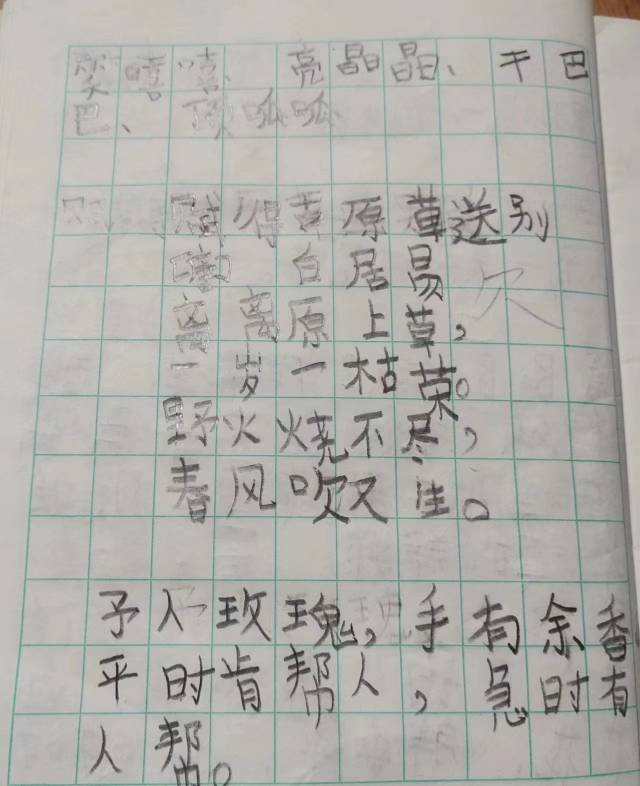 笑嘻嘻、亮晶晶、干巴
巴、顶呱呱
赋得古原草送别
唐 白居易
离离原上草，
一岁一枯荣。
野火烧不尽，
春风吹又生。
予人玫瑰，手有余香
平时肯帮人，急时有
人帮。